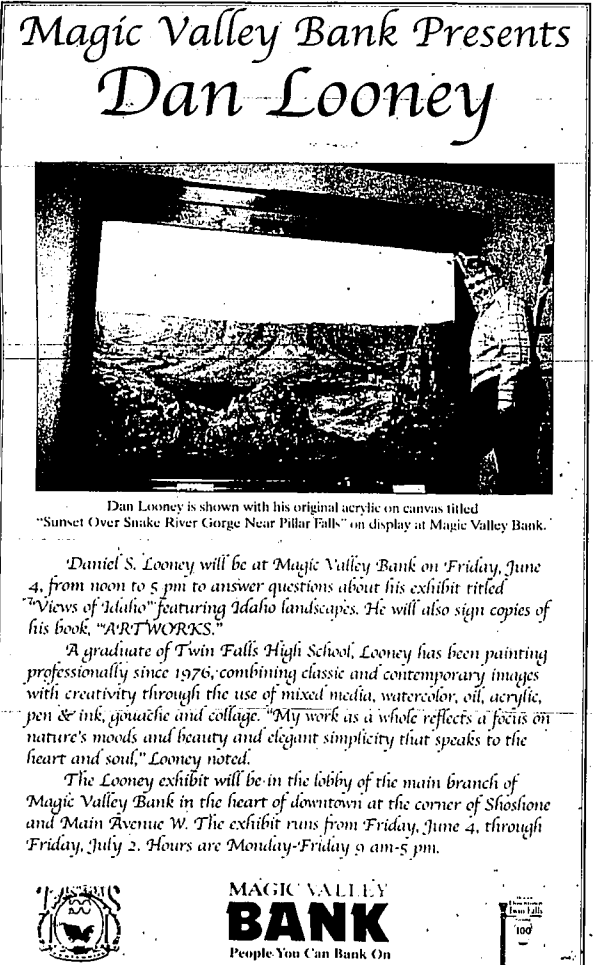 Magic Valley Bank Presents
Dan Looney
Dan Looney is shown with his original acrylic on canvas titled
"Sunset Over Snake River Gorge Near Pillar Falls" on display at Magic Valley Bank.
Daniel S. Looney will be at Magic Valley Bank on Friday, June
4, from noon to 5 pm to answer questions about his exhibit titled
"Views of Idaho" featuring Idaho landscapes. He will also sign copies of
his book, "ARTWORKS."
A graduate of Twin Falls High School, Looney has been painting
professionally since 1976, combining classic and contemporary images
with creativity through the use of mixed media, watercolor, oil, acrylic,
pen & ink, gouache and collage. "My work as a whole reflects a focus on
nature's moods and beauty and elegant simplicity that speaks to the
heart and soul," Looney noted.
The Looney exhibit will be in the lobby of the main branch of
Magic Valley Bank in the heart of downtown at the corner of Shoshone
and Main Avenue W. The exhibit runs from Friday, June 4, through
Friday, July 2. Hours are Monday-Friday 9 am-5 pm.
MAGIC VALLEY
BANK
People You Can Bank On
Twin Falls
100